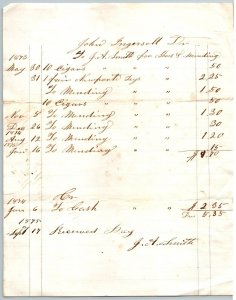 John Ingersoll Dr
1873 To J. A. Smith for Shoes & Mending
May 30 10 Cigars " " 50
31 1 pair Newports Ties " " 2.25
To Mending " " 1.50
10 Cigars " " 50
Nov 5 To Mending " " 1.30
Dec 26 To Mending " " 30
1874
Aug 12 To Mending " " 1.20
Jan 16 To Mending " 15
1874 Cr
Jan 6 To Cash " " $2.35
Due 5.35
1875
Sept 17 Received Pay
J. A. Smith